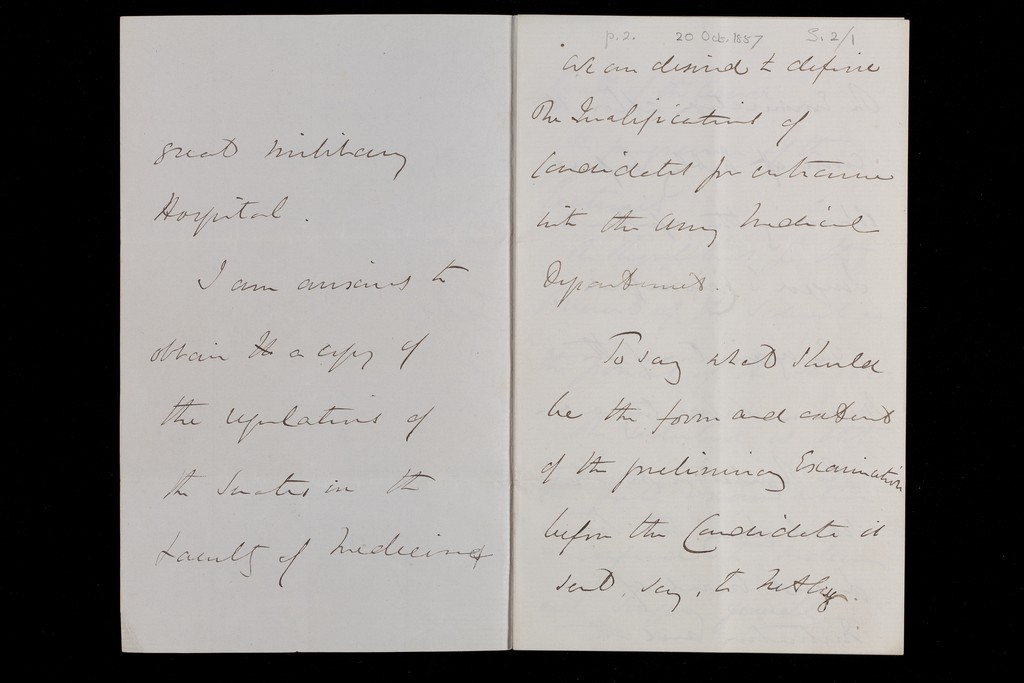 great Military
Hospital.
I am anxious to
obtain a copy of
the regulations of
the Senates in the
Faculty of Medicine
p. 2. 20 Oct. 1857 S. 2/1
We are desired to define
the Qualifications of
Candidates for entrance
into the Army Medical
Department.
To say what should
be the form and extent
of the preliminary Examination
before the Candidate is
sent, say, to Netley.